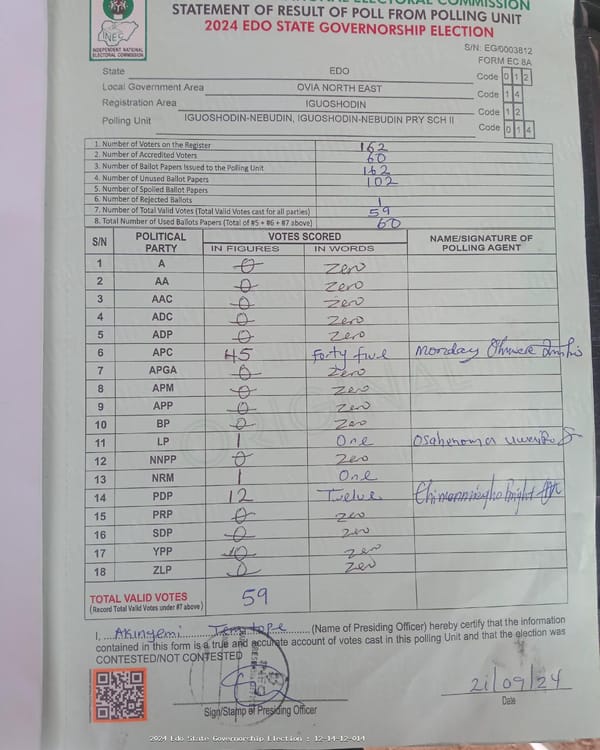 COMMISSION
STATEMENT OF RESULT OF POLL FROM POLLING UNIT
2024 EDO STATE GOVERNORSHIP ELECTION
INEC
INDEPENDENT NATIONAL
ELECTORAL COMMISSION
S/N: EG/0003812
FORM EC 8A
State EDO Code 0 1 2
Local Government Area OVIA NORTH EAST Code 1 4
Registration Area IGUOSHODIN Code 1 2
Polling Unit IGUOSHODIN-NEBUDIN, IGUOSHODIN-NEBUDIN PRY SCH II Code 0 1 4
1. Number of Voters on the Register 162
2. Number of Accredited Voters 60
3. Number of Ballot Papers Issued to the Polling Unit 162
4. Number of Unused Ballot Papers 102
5. Number of Spoiled Ballot Papers
6. Number of Rejected Ballots 1
7. Number of Total Valid Votes (Total Valid Votes cast for all parties) 59
8. Total Number of Used Ballots Papers (Total of #5 + #6 + #7 above) 60
S/N POLITICAL PARTY VOTES SCORED NAME/SIGNATURE OF POLLING AGENT
IN FIGURES IN WORDS
1 A 0 Zero
2 AA 0 Zero
3 AAC 0 Zero
4 ADC 0 Zero
5 ADP 0 Zero
6 APC 45 Forty five Monday
7 APGA 0 Zero
8 APM 0 Zero
9 APP 0 Zero
10 BP 0 Zero
11 LP 1 One
12 NNPP 0 Zero
13 NRM 1 One
14 PDP 12 Twelve Bright
15 PRP 0 Zero
16 SDP 0 Zero
17 YPP 0 Zero
18 ZLP 0 Zero
TOTAL VALID VOTES 59
(Record Total Valid Votes under #7 above)
ORIGINAL
I, Akinyemi Temitope (Name of Presiding Officer) hereby certify that the information
contained in this form is a true and accurate account of votes cast in this polling Unit and that the election was
CONTESTED/NOT CONTESTED
21/09/24
Sign/Stamp of Presiding Officer Date
2024 Edo State Governorship Election : 12-14-12-014